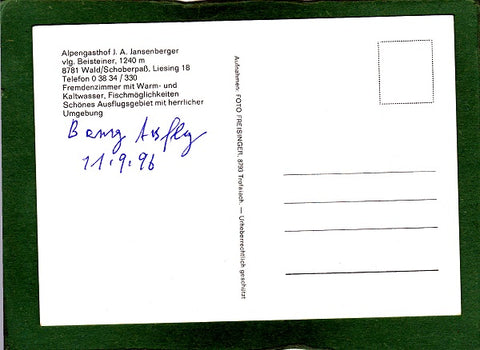 Alpengasthof J. A. Jansenberger
vlg. Beisteiner, 1240 m
8781 Wald/Schoberpaß, Liesing 18
Telefon 0 38 34 / 330
Fremdenzimmer mit Warm- und
Kaltwasser, Fischmöglichkeiten
Schönes Ausflugsgebiet mit herrlicher
Umgebung
11.9.96
Aufnahmen: FOTO FREISINGER, 8793 Trofaiach. — Urheberrechtlich geschützt